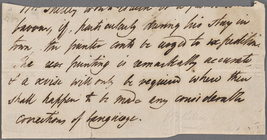 Mr. Shelley would esteem it a
favour, if, particularly during his stay in
town, the printer could be urged to expedition.
The press printing is remarkably accurate
& a revise will only be required where there
shall happen to be made any considerable
corrections of language.